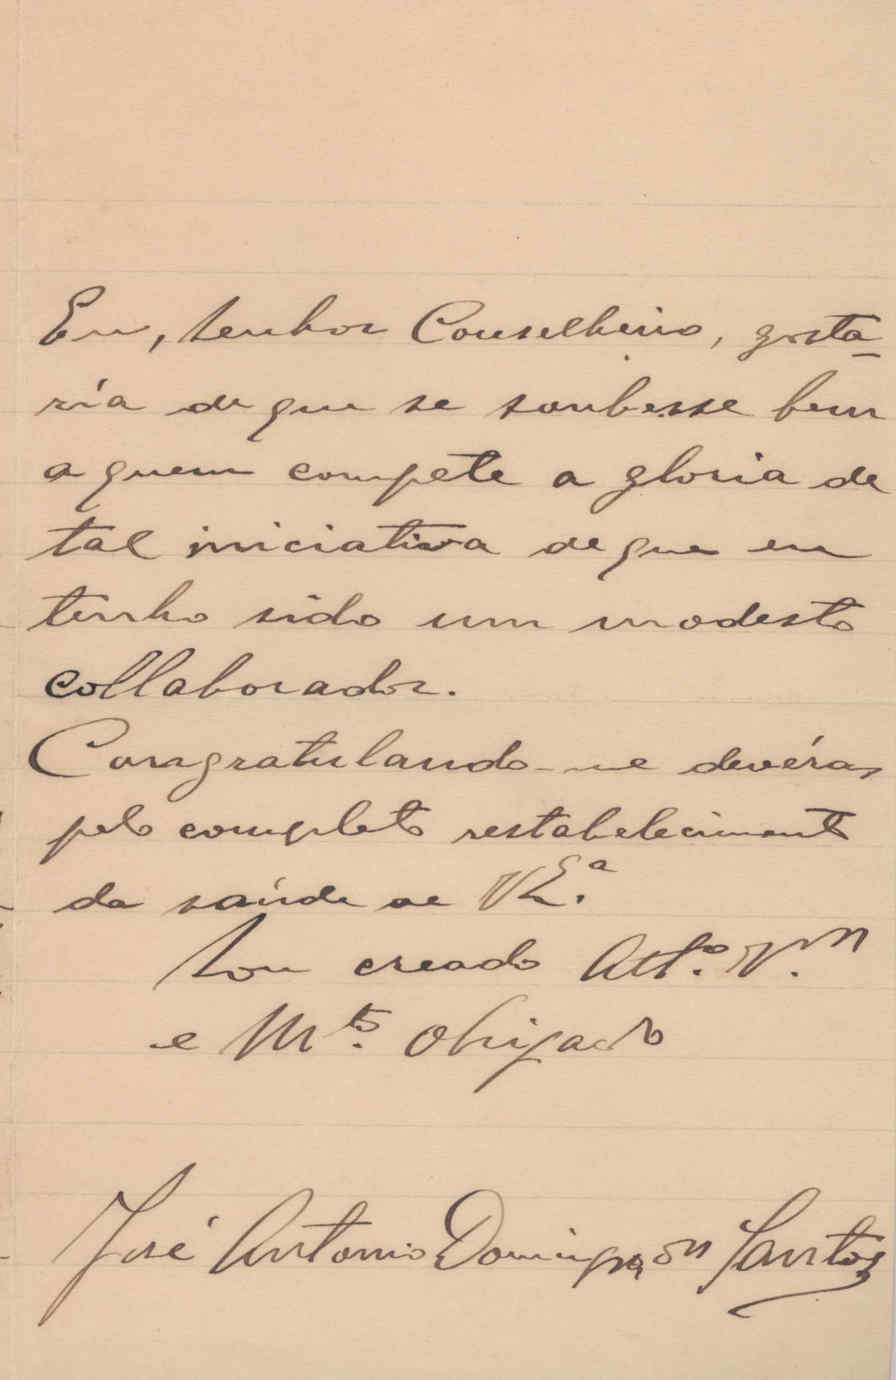 Eu, Senhor Conselheiro, gosta-
ria de que se soubesse bem
a quem compete a gloria de
tal iniciativa de que eu
tenho sido um modesto
collaborador.
Congratulando-me devéras
pelo completo restabelecimento
da saúde de V Exª
Sou creado Attº. Vor
e Mto. Obrigado
José Antonio Domingues dos Santos